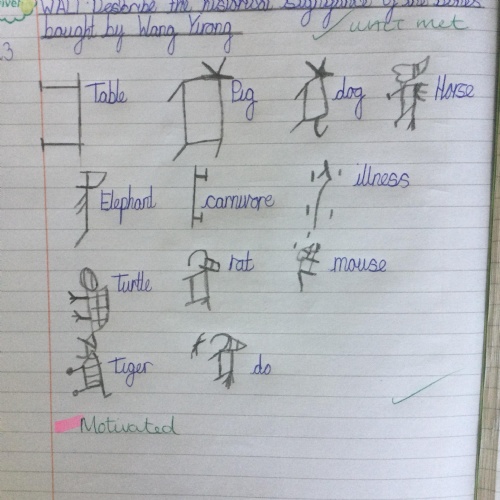 WALT: Describe the historical significance of the bones
bought by Wang Yirong
WALT met
3
Table Pig dog Horse
Elephant carnivore illness
Turtle rat mouse
Tiger do
Motivated